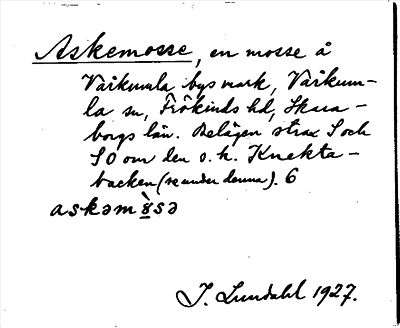 Askemosse, en mosse å
Vårkumla bys mark, Vårkum-
la sn, Frökinds hd, Skara-
borgs län. Belägen strax S och
SO om den s. k. Knekta-
backen (se under denna). 6
askəmòsə
J. Lundahl 1927.